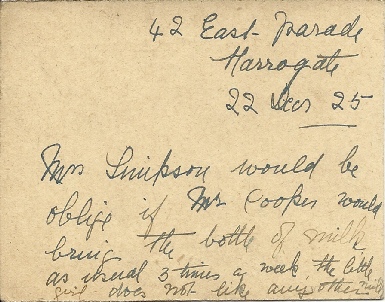 42 East Parade
Harrogate
22 Decr 25
Mrs Simpson would be
oblige if Mr Cooper would
bring the bottle of milk
as usual 3 times a week, the little
girl does not like any other milk